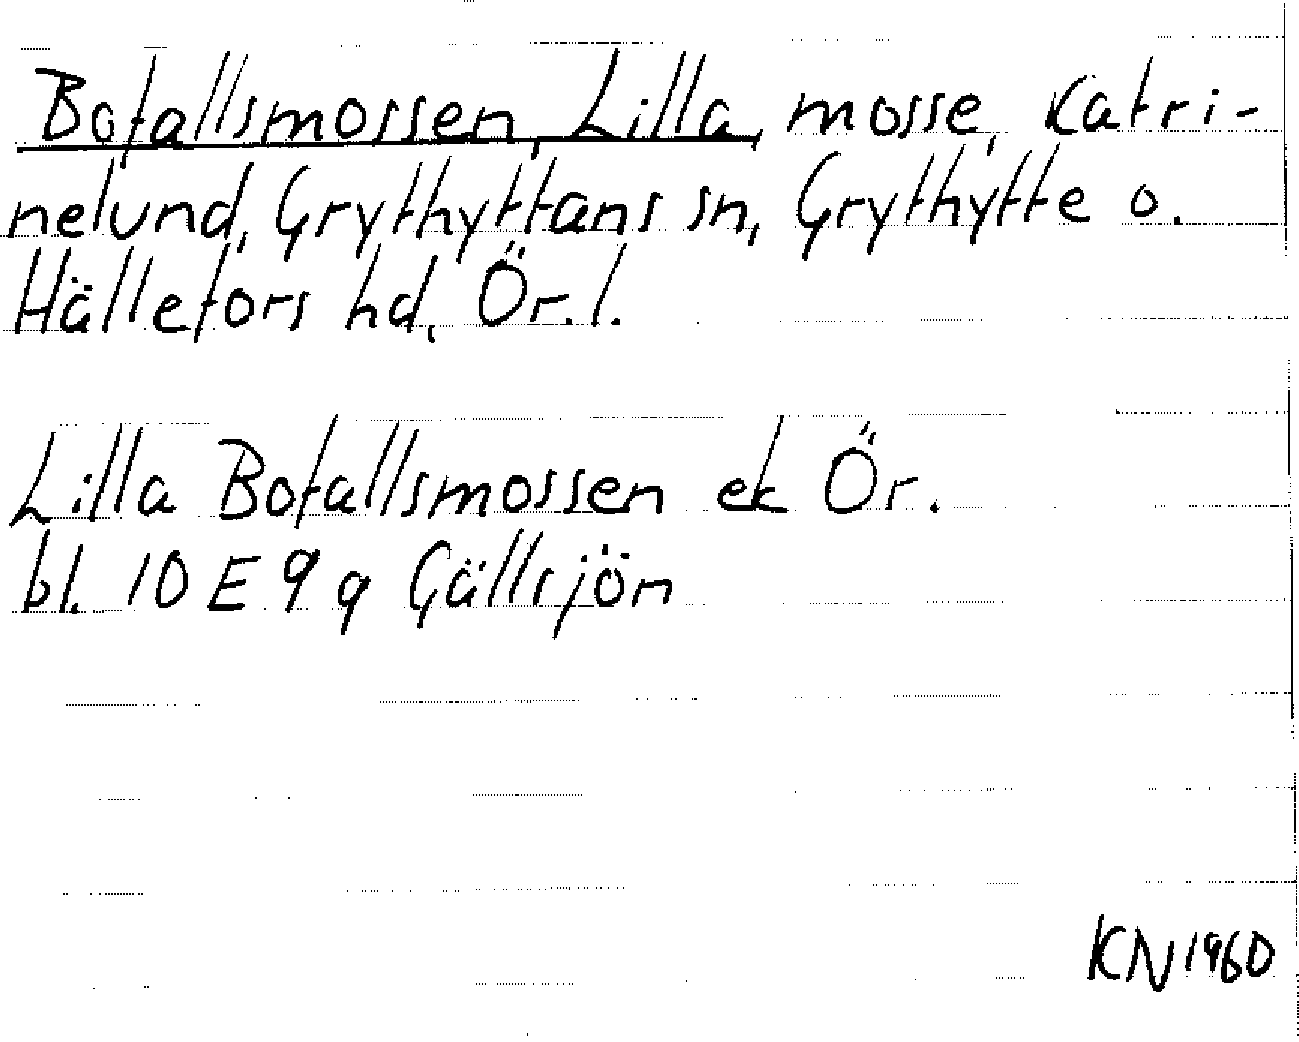 Bofallsmossen, Lilla, mosse, Katri-
nelund, Grythyttans sn, Grythytte o.
Hällefors hd, Ör. l.
Lilla Bofallsmossen ek Ör.
bl. 10 E 9 g Gällsjön
KN 1960